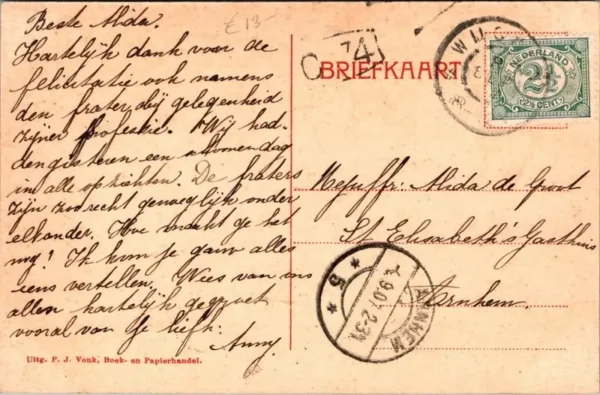 £ 13-
Beste Mida.
Hartelijk dank voor de
felicitatie ook namens
den frater, bij gelegenheid
zijner professie. Wij had-
den gisteren een schoonen dag
in alle opzichten. De fraters
zijn zoo recht genoeglijk onder
elkander. Hoe maakt ge het
nog? Ik kom je gauw alles
eens vertellen. Wees van ons
allen hartelijk gegroet
vooral van je liefh:
Anny.
Uitg. P. J. Vonk, Boek- en Papierhandel.
74
BRIEFKAART
NEDERLAND
2½
(2½ CENT)
Mejuffr: Mida de Groot
St Elisabeth's Gasthuis
Arnhem.
ARNHEM
5